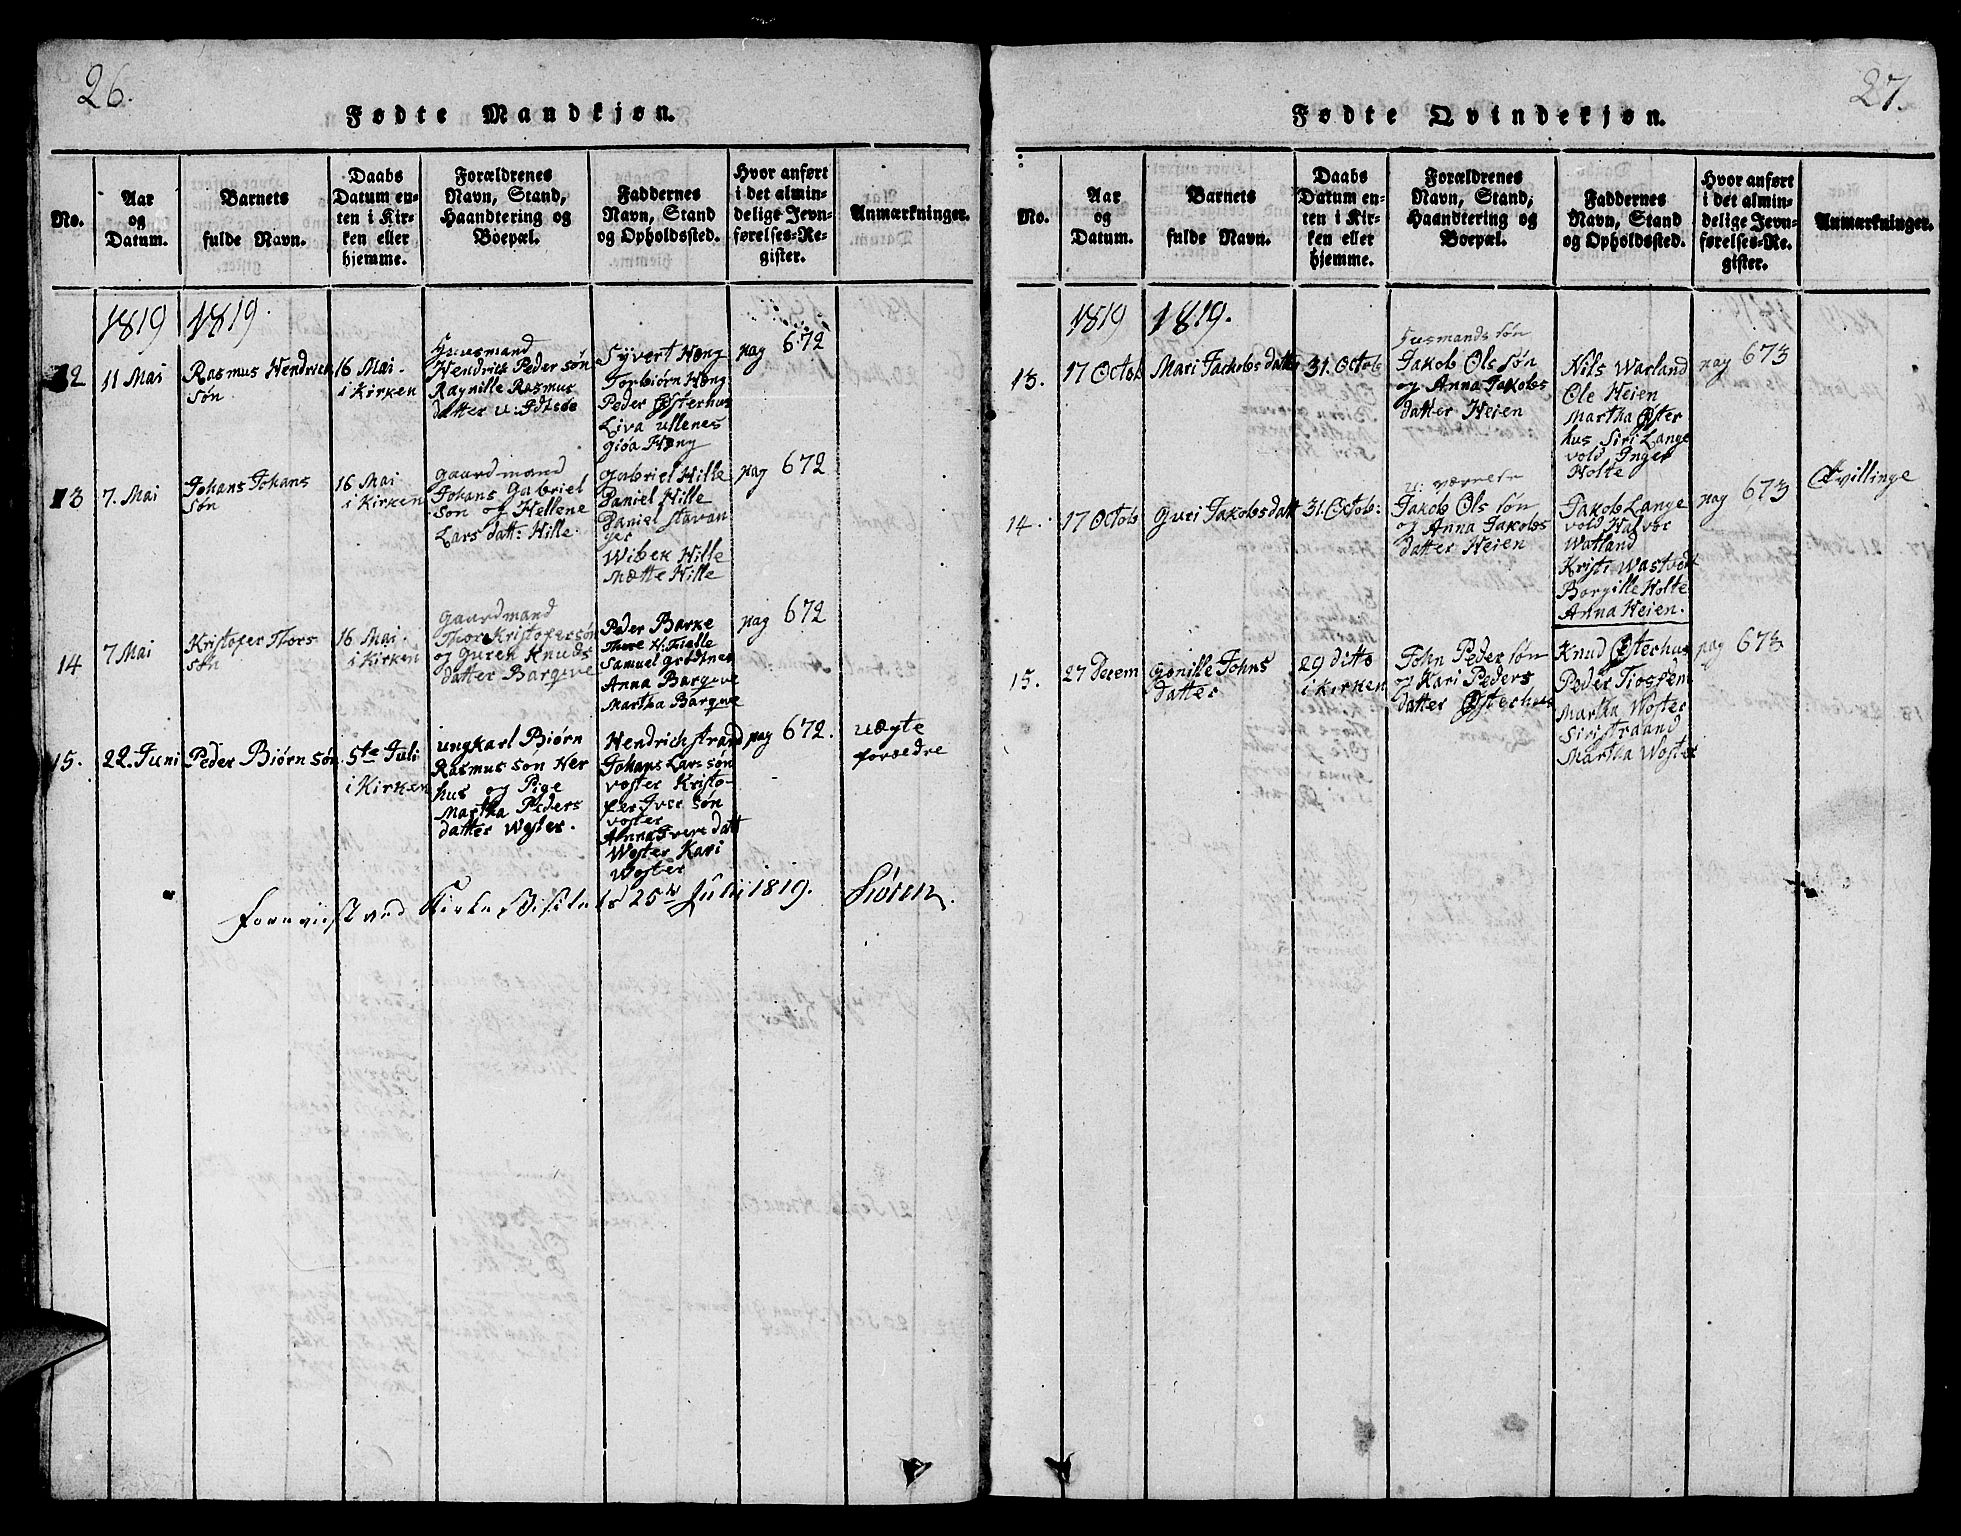 26.
Fødte Mandkjøn.
No.
Aar
og
Datum.
Barnets
fulde Navn.
Daabs
Datum en-
ten i Kir-
ken eller
hjemme.
Forældrenes
Navn, Stand,
Haandtering og
Boepæl.
Faddernes
Navn, Stand
og Opholdssted.
Hvor anført
i det almin-
delige Jevn-
førelses-Re-
gister.
Anmærkninger.
1819
1819.
12
11 Mai
Rasmus Hendrich
søn
16 Mai.
i Kirken
Huusmand
Hendrich Peder søn
Ragnille Rasmus
datter u: Idtsøe
Syvert Høng
Torbiørn Høng
Peder Østerhus
Liva ullenes
Giøa Høng
pag 672
13
7. Mai
Johans Johans
søn
16 Mai
i Kirken
gaardmand
Johans Gabriel
son og Hellene
Lars datt: Hille.
gabriel Hille
Daniel Hille
Daniel stavan
ger
Wibek Hille
Mætte Hille
pag 672
14
7 Mai
Kristofer Thors
søn
16 Mai.
i Kirken
gaardmand
Thor Kristofersøn
og guren Knuds
datter Bargeve
Peder Barke
Thore H: Fielle
Samuel grødtnes
Anna Bargeve
Martha Bargeve
pag 672
15.
22. Juni
Peder Biørn søn
5te Juli
i Kirken
ungkarl Biørn
Rasmus son Her
hus og Pige
Martha Peders
datter Woster.
Hendrich strand
Johans Lars søn
voster Kristo-
fer Iver søn
voster
Anna Ivers datt
Woster Kari
Woster
pag 672.
uægte
foroedre
Foreviist ved Kirke Visitats 25de Julii 1819. Sören.
27.
Fødte Qvindekjøn.
No.
Aar
og
Datum.
Barnets
fulde Navn.
Daabs
Datum en-
ten i Kir-
ken eller
hjemme.
Forældrenes
Navn, Stand,
Haandtering og
Boepæl.
Faddernes
Navn, Stand
og Opholdssted.
Hvor anført
i det almin-
delige Jevn-
førelses-Re-
gister.
Anmærkninger.
1819
1819.
13.
17 Octob
Mari Jackobs datter
31. Octob
Husmands søn
Jakob Ols søn
og Anna Jakobs
datter Heien
Nils Watland
Ole Heien
Martha Øster
hus Siri Lange
vold Inger
Holte
pag 673
14.
17 Octob
Guri Jakobs datt
31. Octob:
u: værnete
Jakob Ols søn
og Anna Jakobs
datter Heien
Jakob Lange
vold Halvor
Watland
Kristi Wastvedt
Borgille Holte
Anna Heien.
pag 673
Tvillinge
15.
27 Decem
Gonille Johns
datter
29 ditto
i kirken
John Peder søn
og Kari Peders
datter Østerhus
Knud Østerhus
Peder Tiossem
Martha Woster
Siri straand
Martha Woster
pag 673